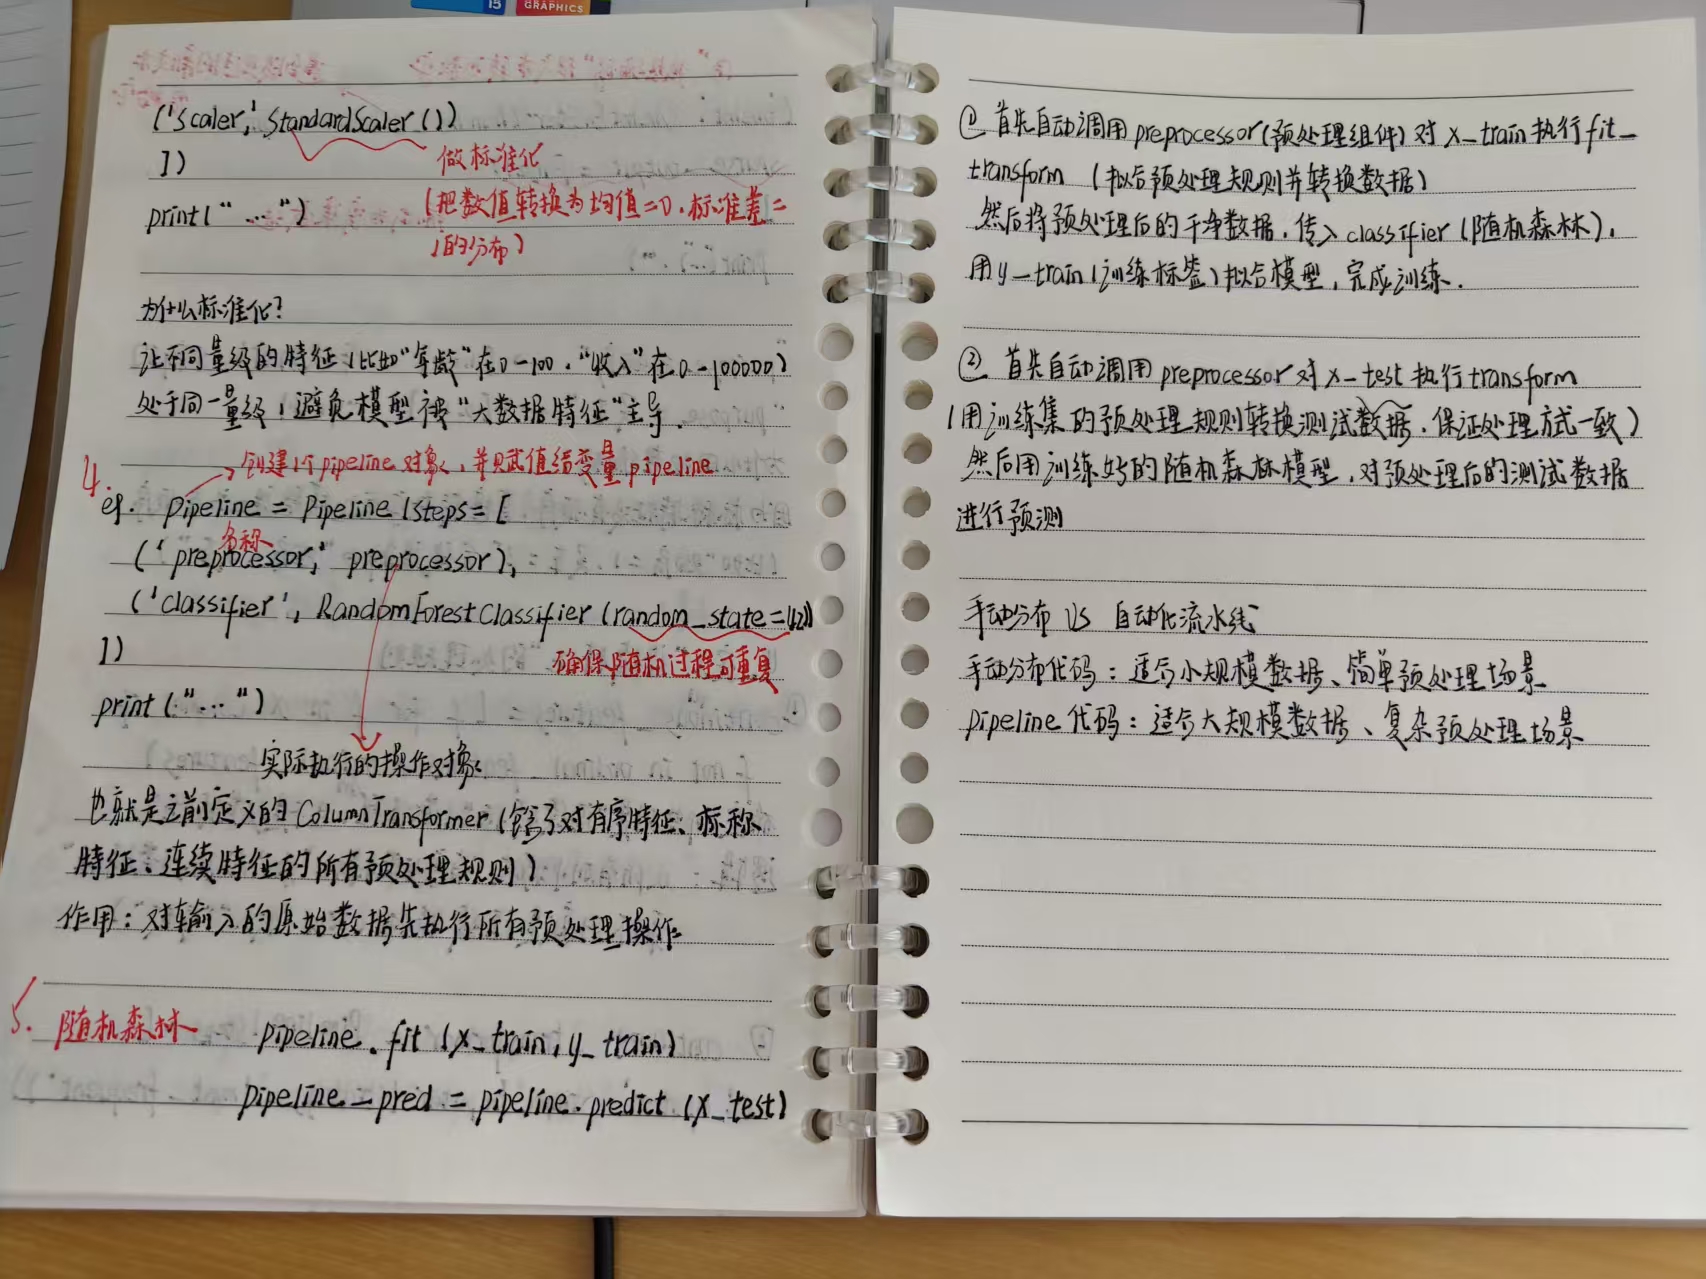 15
GRAPHICS
('scaler', StandardScaler())
])
做标准化
print("...")
(把数值转换为均值=0.标准差=
1的分布)
为什么标准化?
让不同量级的特征(比如"年龄"在0-100."收入"在0-100000)
处于同一量级,避免模型被"大数据特征"主导.
4.
创建1个pipeline对象,并赋值给变量pipeline
eg. pipeline = Pipeline(steps=[
名称
('preprocessor', preprocessor),
('classifier', RandomForestClassifier(random_state=42))
])
确保随机过程可重复
print("...")
实际执行的操作对象
也就是之前定义的ColumnTransformer(含了对有序特征、标称
特征、连续特征的所有预处理规则)
作用:对输入的原始数据先执行所有预处理操作
5. 随机森林 pipeline.fit(x_train,y_train)
pipeline_pred = pipeline.predict(x_test)
① 首先自动调用preprocessor(预处理组件)对x_train执行fit_
transform (拟合预处理规则并转换数据)
然后将预处理后的干净数据.传入classifier(随机森林).
用y_train(训练标签)拟合模型,完成训练.
② 首先自动调用preprocessor对x_test执行transform
(用训练集的预处理规则转换测试数据.保证处理方式一致)
然后用训练好的随机森林模型,对预处理后的测试数据
进行预测
手动分布 VS 自动化流水线
手动分布代码:适合小规模数据、简单预处理场景
pipeline代码:适合大规模数据、复杂预处理场景